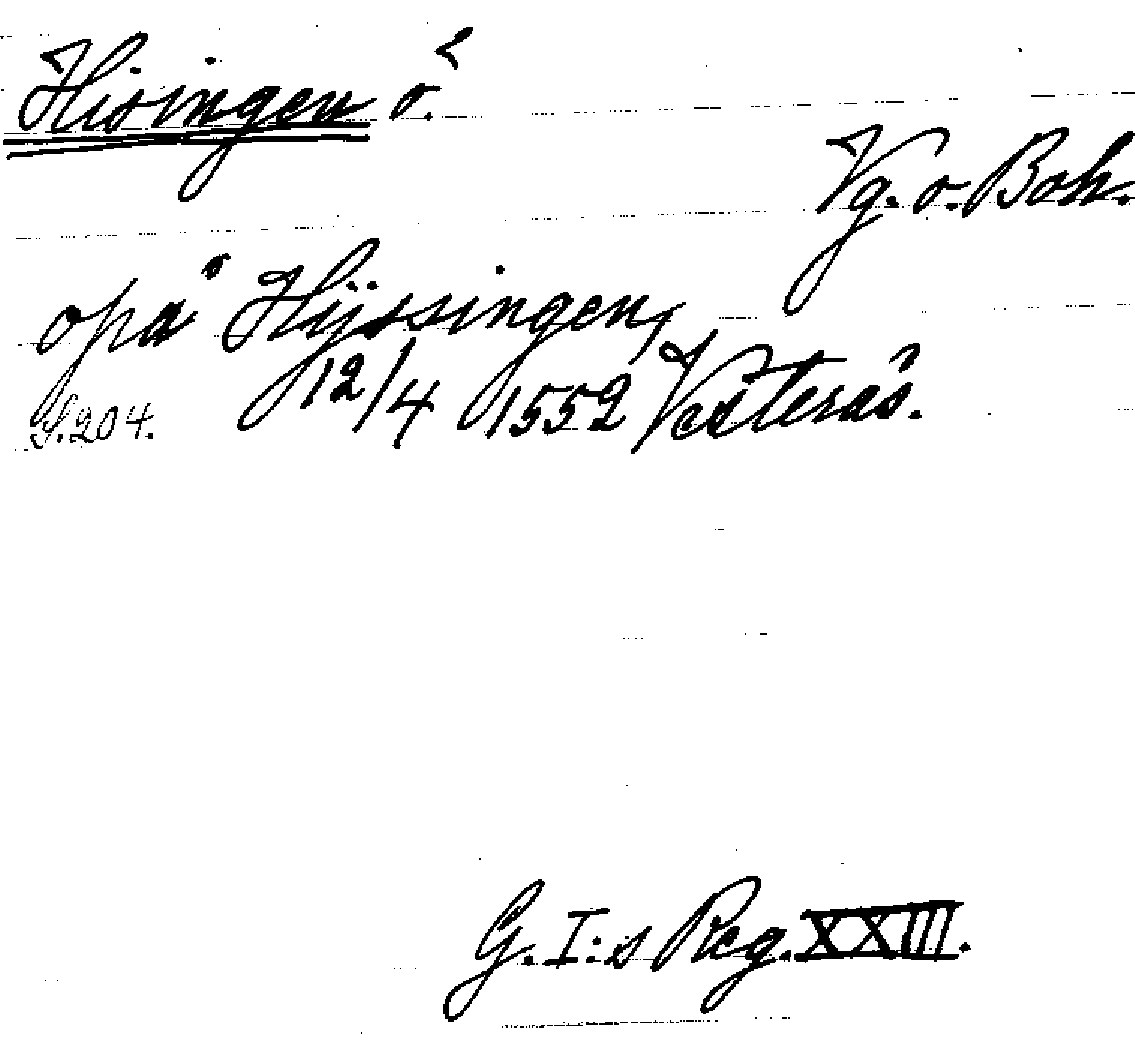 Hisingen ö.
Vg. o. Boh.
opå Hÿssingen,
S. 204. 12/4 1552 Västerås.
G. I:s Reg. XXIII.